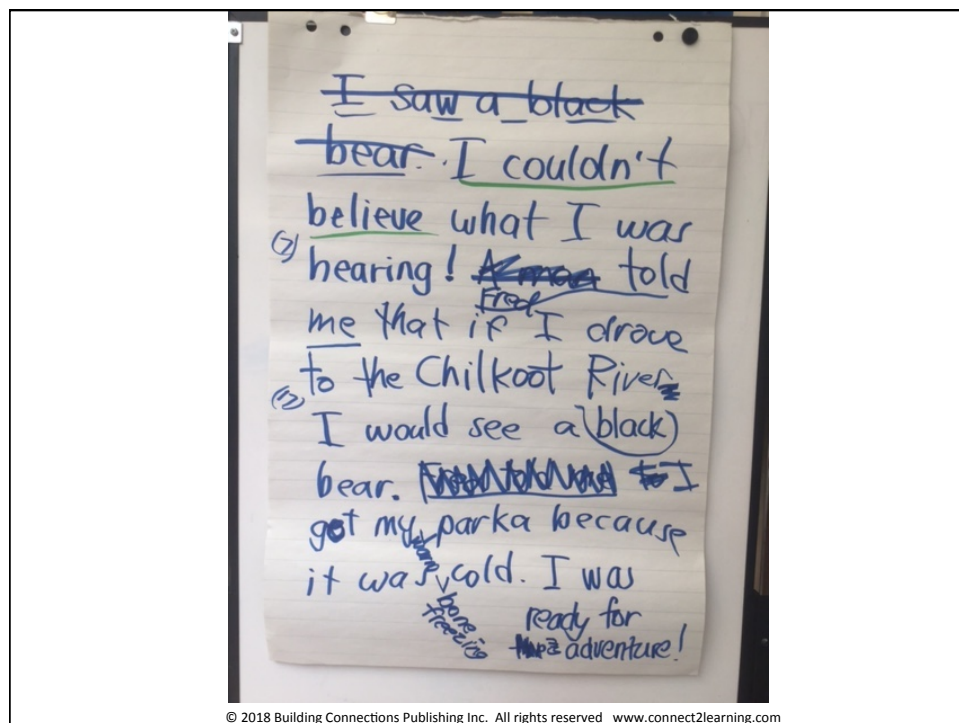 I saw a black
bear. I couldn't
believe what I was
(7) hearing! A man told
Fred
me that if I drove
to the Chilkoot River
(13)
I would see a black
bear. to I
got my parka because
it was cold. I was
bone
freezing
ready for
adventure!
© 2018 Building Connections Publishing Inc. All rights reserved www.connect2learning.com